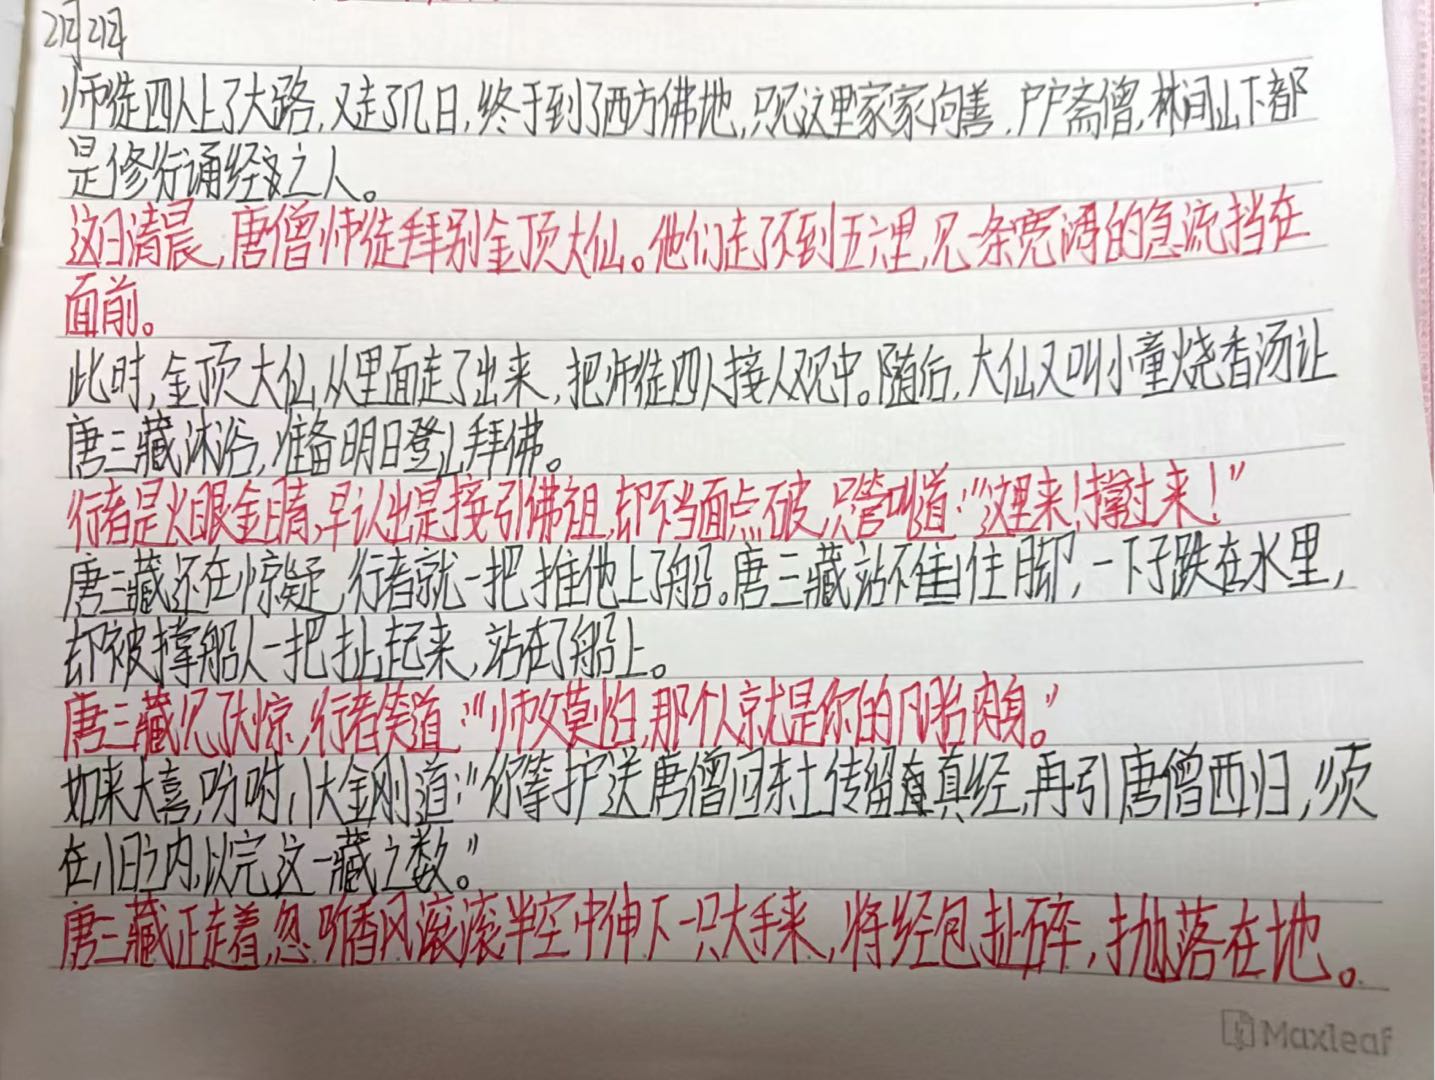 2月2日
师徒四人上了大路,又走了几日,终于到了西方佛地,只见这里家家向善,户户斋僧,林间山下都
是修行诵经之人。
这日清晨,唐僧师徒拜别金顶大仙。他们走了不到五六里,见一条宽阔的急流挡在
面前。
此时,金顶大仙从里面走了出来,把师徒四人接入观中。随后,大仙又叫小童烧香汤让
唐三藏沐浴,准备明日登山拜佛。
行者是火眼金睛,早认出是接引佛祖,却不当面点破,只管叫道:“这里来!撑过来!”
唐三藏还在惊疑,行者就一把推他上了船。唐三藏站不住脚,一下子跌在水里,
却被撑船人一把扯起来,站在了船上。
唐三藏见了大惊,行者笑道:“师父莫怕,那个人就是你的凡胎肉身。”
如来大喜,吩咐八大金刚道:“你等护送唐僧回东土传留真经,再引唐僧西归,须
在八日之内,以完这一藏之数。”
唐三藏正走着,忽听香风滚滚半空中伸下一只大手来,将经包扯碎,抛落在地。
Maxleaf